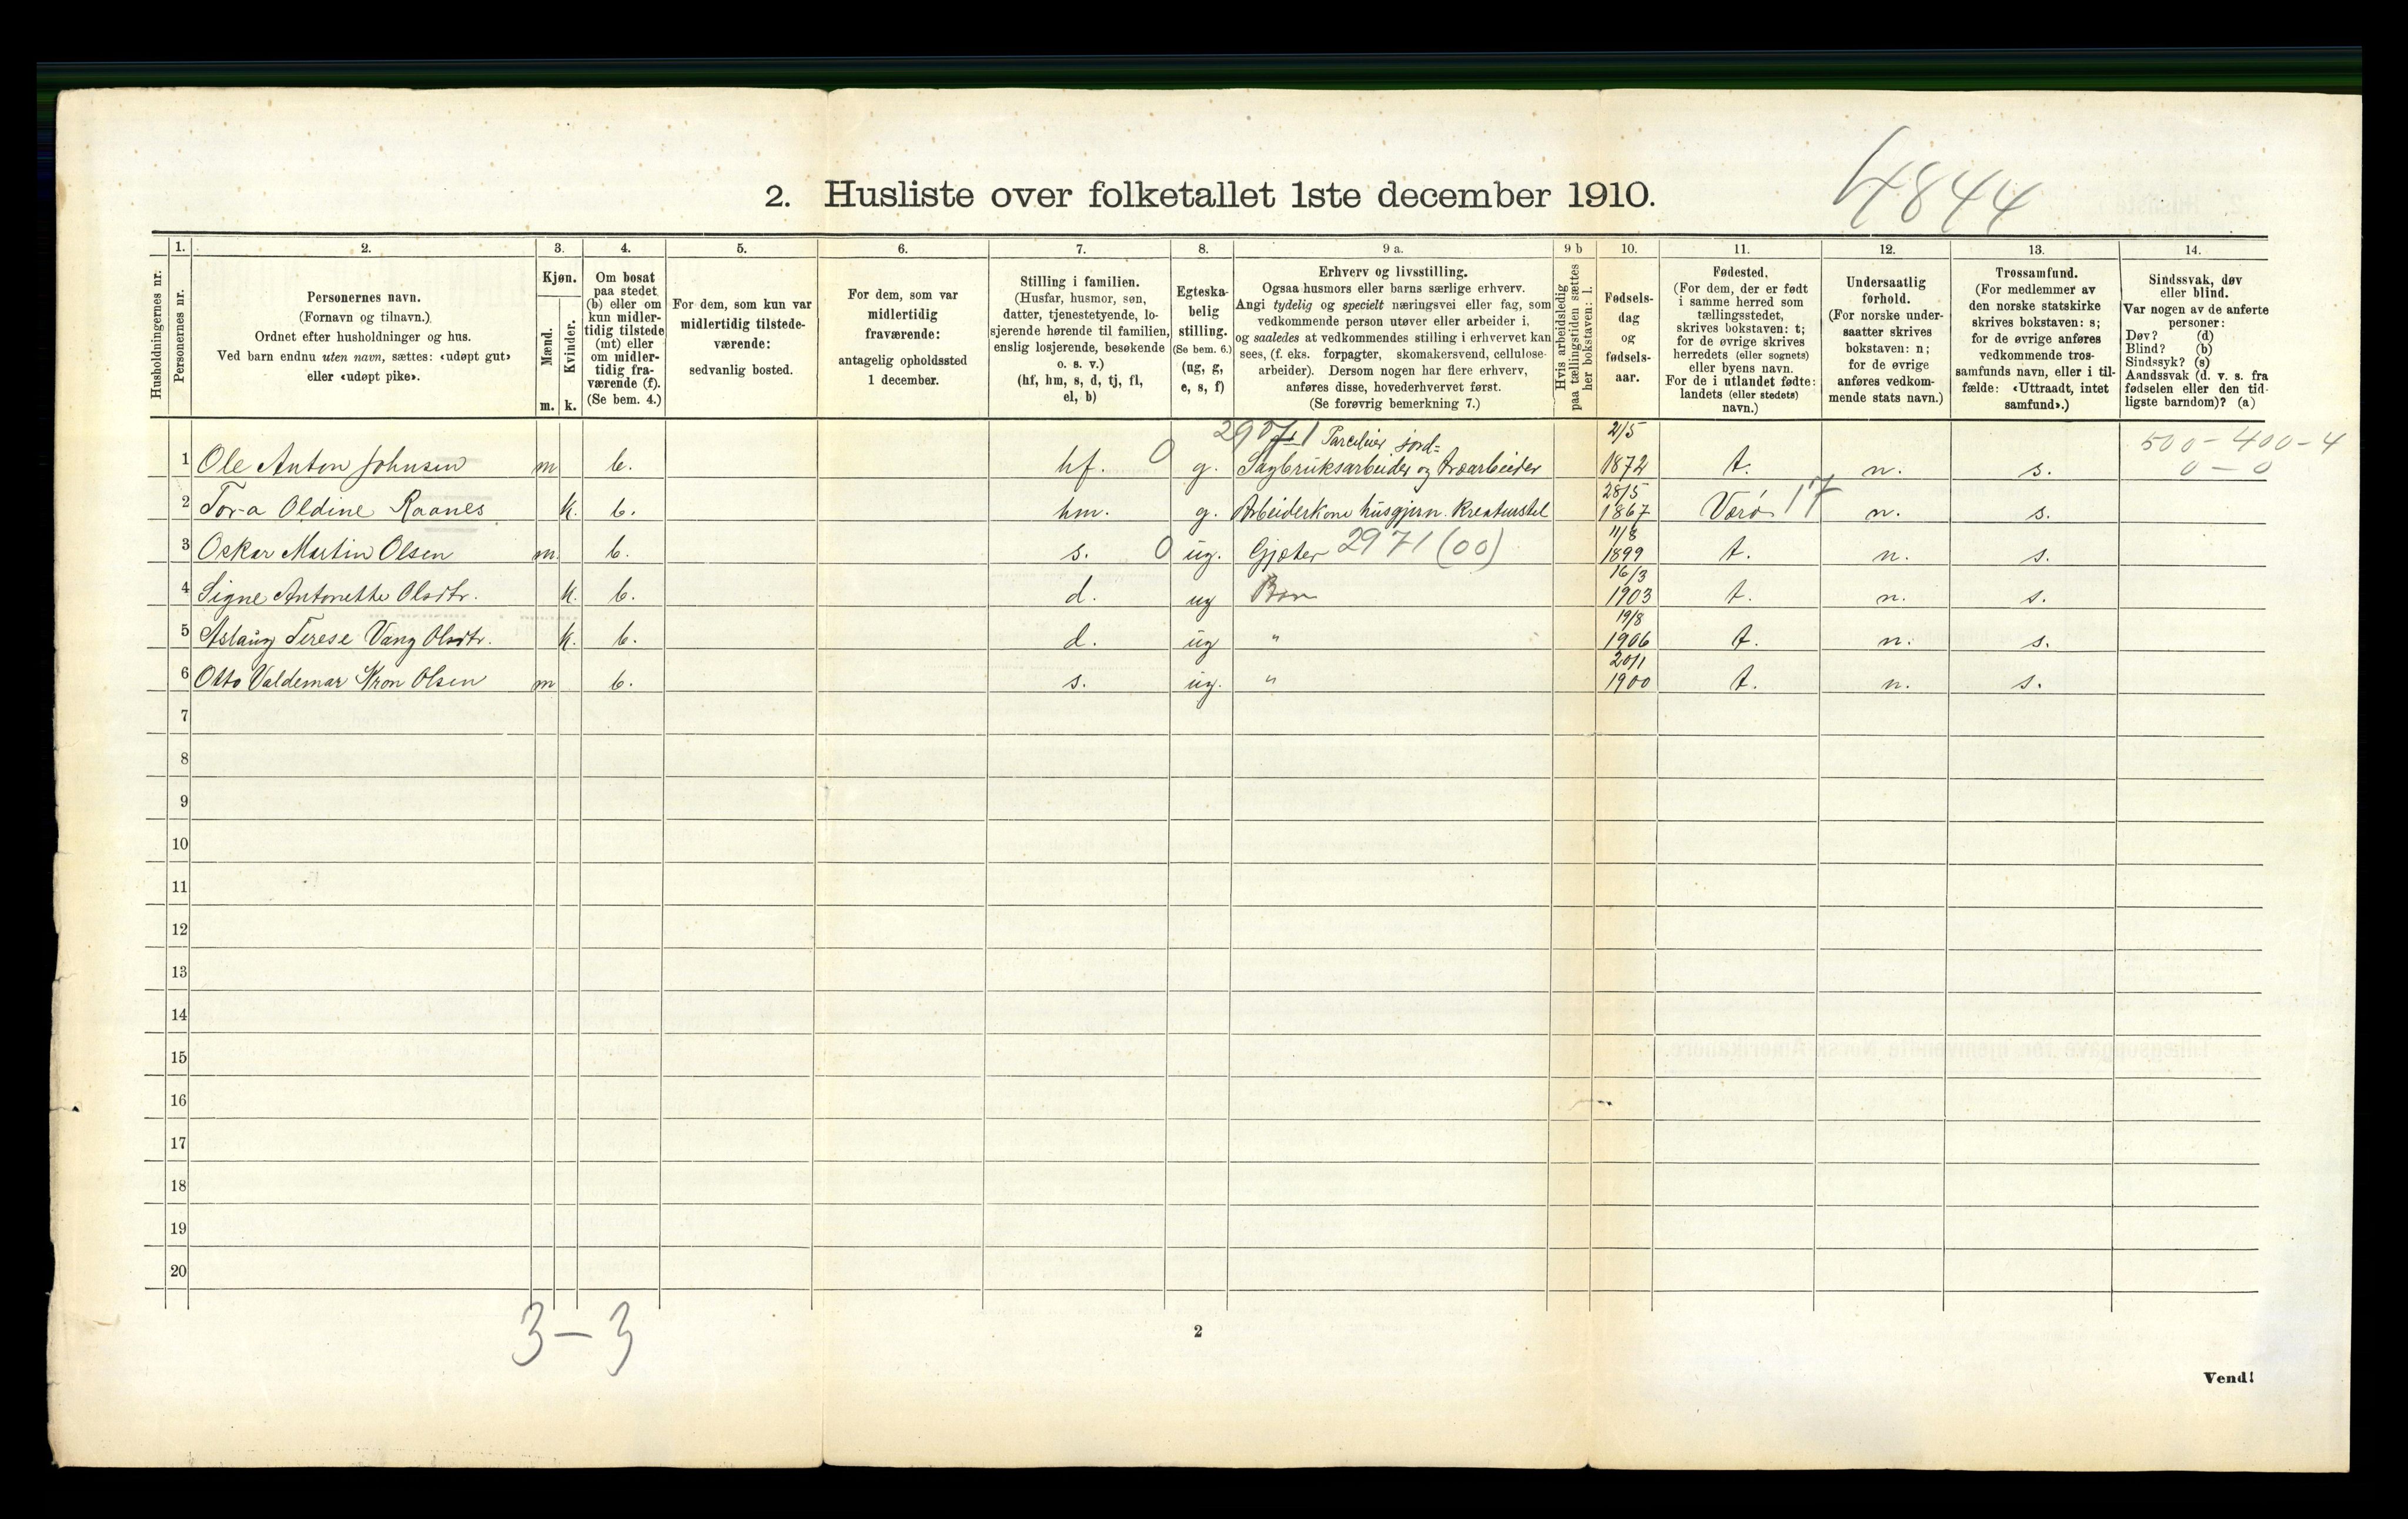 2. Husliste over folketallet 1ste december 1910.
4844
Husholdningernes nr.
1.
Personernes nr.
2.
Personernes navn.
(Fornavn og tilnavn.)
Ordnet efter husholdninger og hus.
Ved barn endnu uten navn, sættes: «udøpt gut»
eller «udøpt pike».
3.
Kjøn.
Mænd.
Kvinder.
m. k.
4.
Om bosat
paa stedet
(b) eller om
kun midler-
tidig tilstede
(mt) eller
om midler-
tidig fra-
værende (f).
(Se bem. 4.)
5.
For dem, som kun var
midlertidig tilstede-
værende:
sedvanlig bosted.
6.
For dem, som var
midlertidig
fraværende:
antagelig opholdssted
1 december.
7.
Stilling i familien.
(Husfar, husmor, søn,
datter, tjenestetyende, lo-
sjerende hørende til familien,
enslig losjerende, besøkende
o. s. v.)
(hf, hm, s, d, tj, fl,
el, b)
8.
Egteska-
belig
stilling.
(Se bem. 6.)
(ug, g,
e, s, f)
9 a.
Erhverv og livsstilling.
Ogsaa husmors eller barns særlige erhverv.
Angi tydelig og specielt næringsvei eller fag, som
vedkommende person utøver eller arbeider i,
og saaledes at vedkommendes stilling i erhvervet kan
sees, (f. eks. forpagter, skomakersvend, cellulose-
arbeider). Dersom nogen har flere erhverv,
anføres disse, hovederhvervet først.
(Se forøvrig bemerkning 7.)
9 b
Hvis arbeidsledig
paa tællingstiden sættes
her bokstaven: l.
10.
Fødsels-
dag
og
fødsels-
aar.
11.
Fødested.
(For dem, der er født
i samme herred som
tællingsstedet,
skrives bokstaven: t;
for de øvrige skrives
herredets (eller sognets)
eller byens navn.
For de i utlandet fødte:
landets (eller stedets)
navn.)
12.
Undersaatlig
forhold.
(For norske under-
saatter skrives
bokstaven: n;
for de øvrige
anføres vedkom-
mende stats navn.)
13.
Trossamfund.
(For medlemmer av
den norske statskirke
skrives bokstaven: s;
for de øvrige anføres
vedkommende tros-
samfunds navn, eller i til-
fælde: «Uttraadt, intet
samfund».)
14.
Sindssvak, døv
eller blind.
Var nogen av de anførte
personer:
Døv? (d)
Blind? (b)
Sindssyk? (s)
Aandssvak (d. v. s. fra
fødselen eller den tid-
ligste barndom)? (a)
Parcelier jord= 2/5 500 - 400 - 4
1 Ole Anton Johnsen m b. hf. 0 g. Sagbruksarbeider og træarbeider 1872 t. n. s. 0 - 0
28/5
2 Tora Oldine Raanes k. b. hm. g. Arbeiderkone husgjern. Kreaturstel 1867 Værö 17 n. s.
11/8
3 Oskar Martin Olsen m. b. s. 0 ug. Gjæter 2971 (00) 1899 t. n. s.
16/3
4 Signe Antonette Olsdtr. k. b. d. ug Barn 1903 t. n. s.
19/8
5 Aslaug Terese Vang Olsdtr. k. b. d. ug " 1906 t. n. s.
20/1
6 Otto Valdemar Kron Olsen m b. s. ug. " 1900 t. n. s.
7
8
9
10
11
12
13
14
15
16
17
18
19
20
3 - 3
2
Vend!